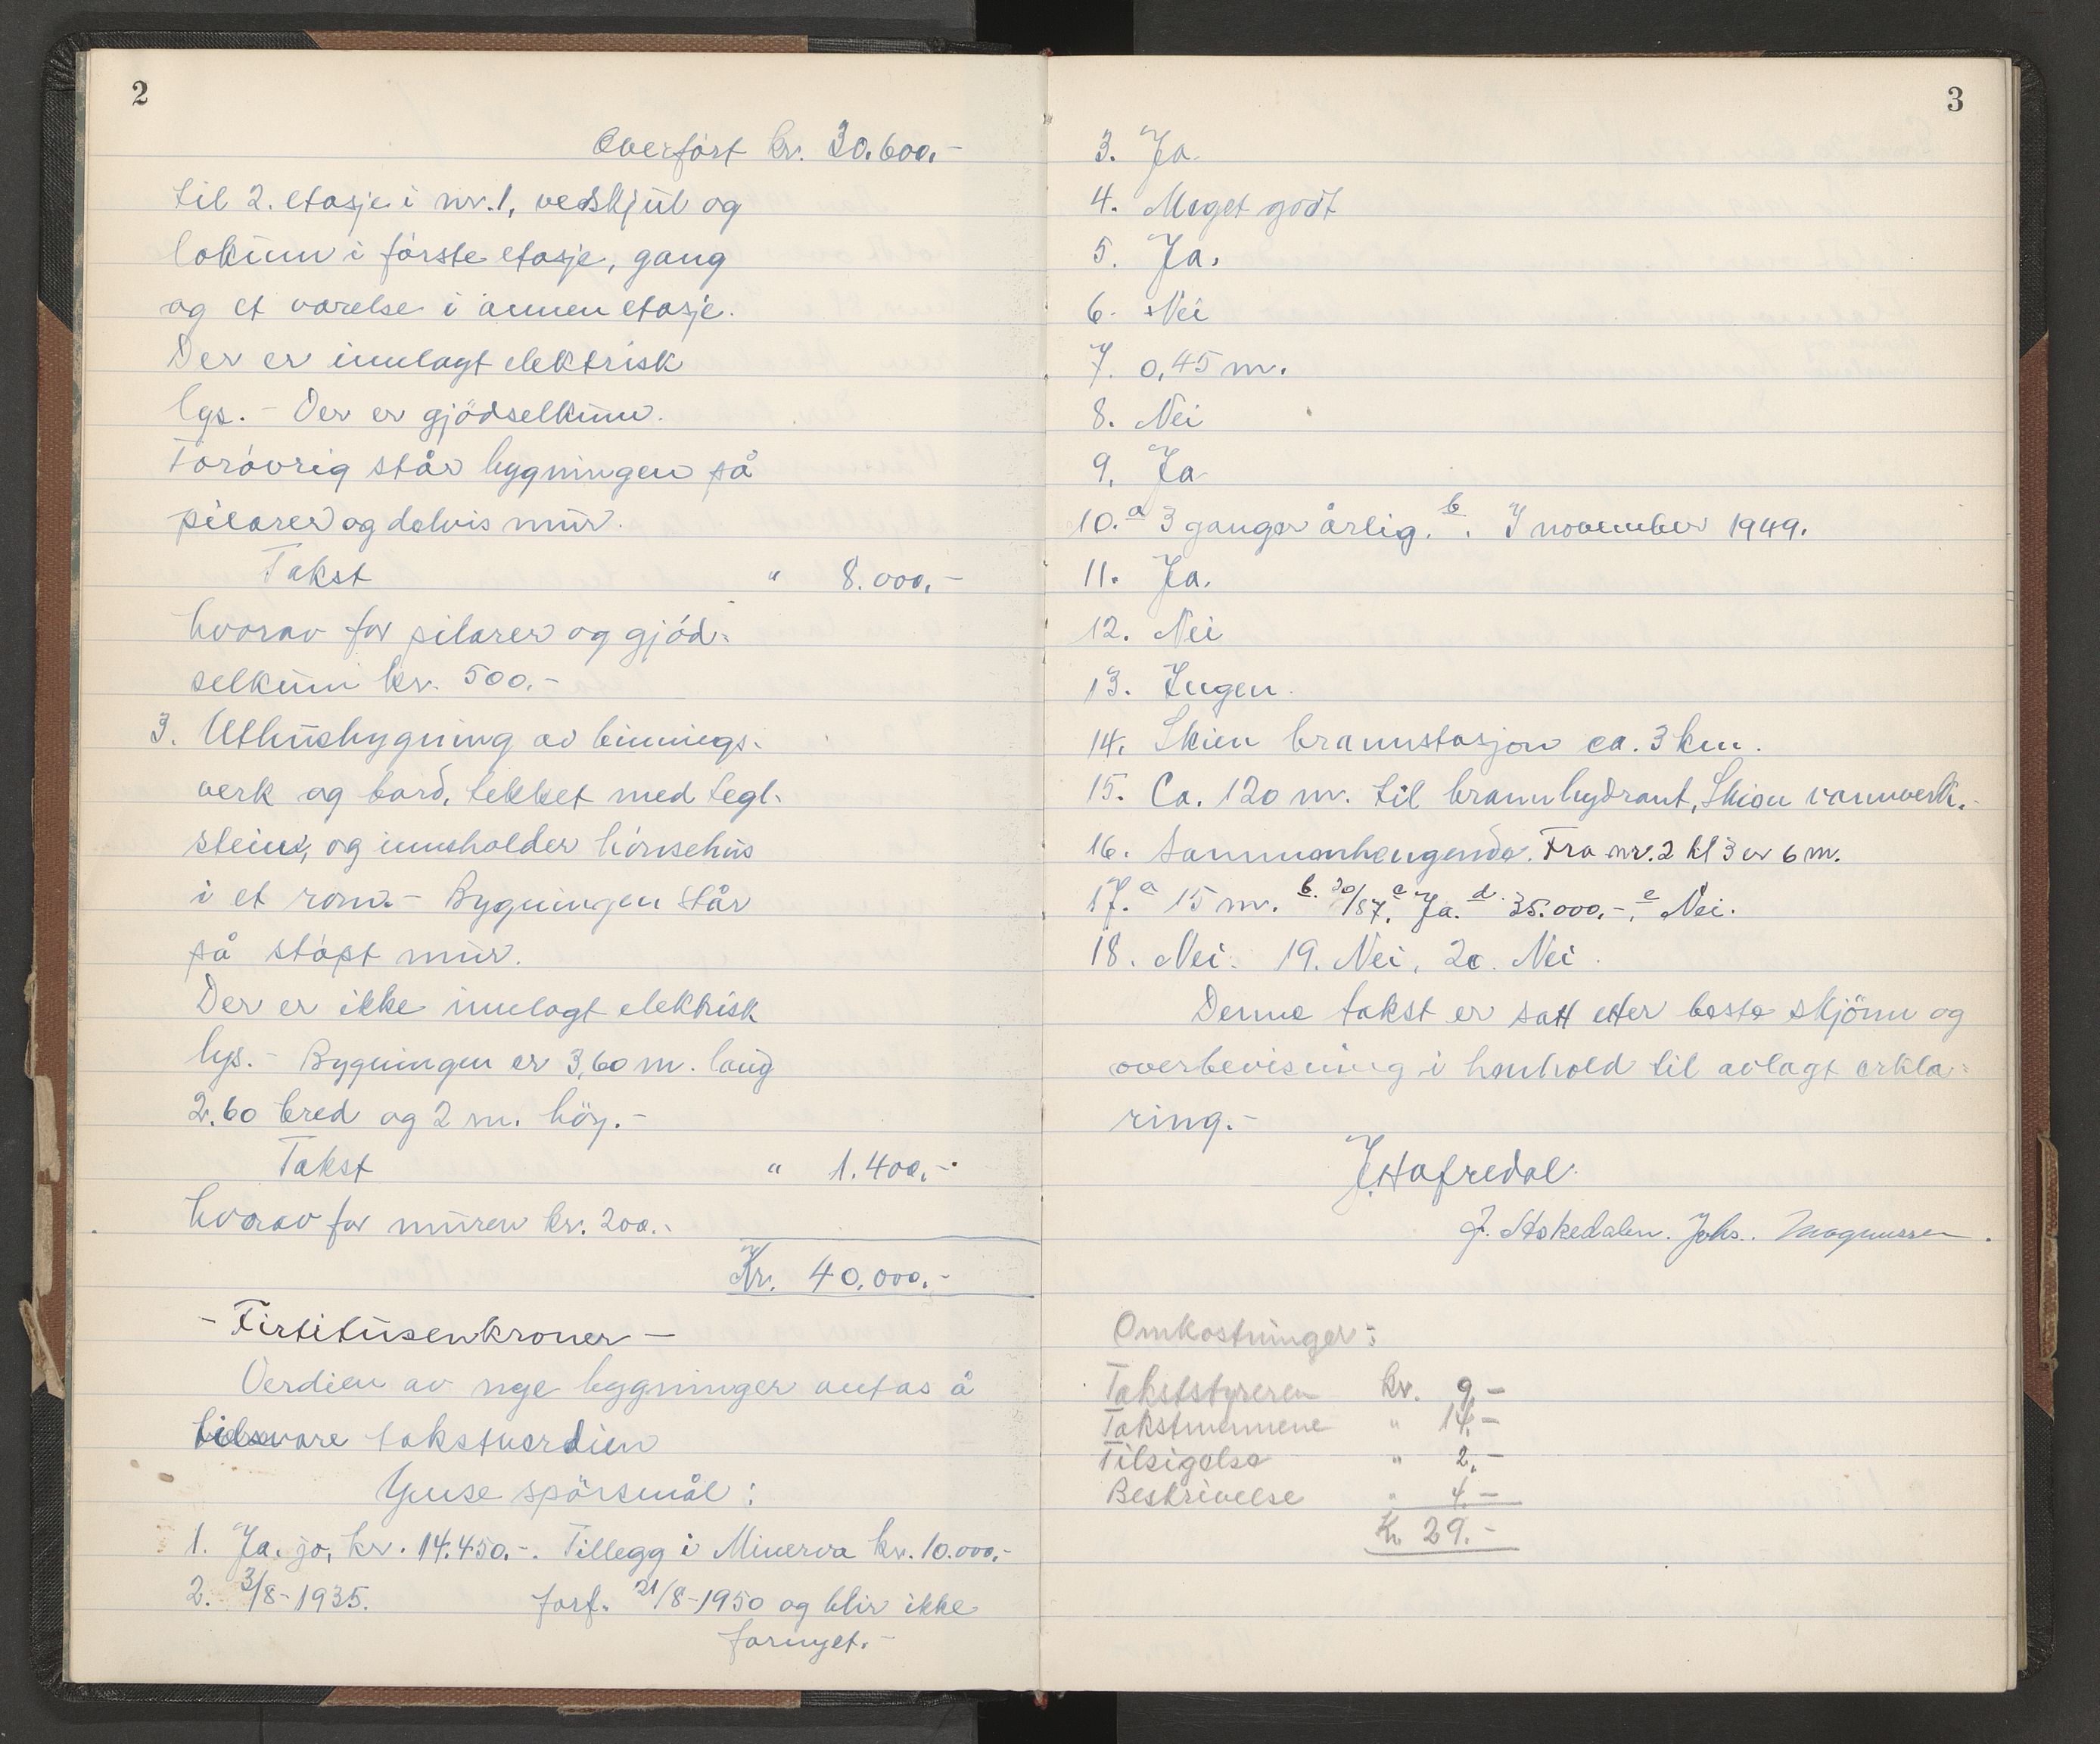 2
Overført kr. 30.600,-
til 2. etasje i nr. 1, vedskjul og
lokum i første etasje, gang
og et værelse i annen etasje.
Der er innlagt elektrisk
lys. - Der er gjødselkum.
Forøvrig står bygningen på
pilarer og delvis mur.
Takst " 8.000,-
hvorav for pilarer og gjød-
selkum kr. 500.-
3. Uthusbygning av binnings-
verk og bord, tekket med tegl-
stein, og innholder hønsehus
i et rom. - Bygningen står
på støpt mur.
Der er ikke innlagt elektrisk
lys. - Bygningen er 3,60 m. lang
2.60 bred og 2 m. høy. -
Takst " 1.400,-
hvorav for muren kr. 200.-
Kr. 40.000.-
- Firtitusenkroner -
Verdien av nye bygninger antas å
tilsvare takstverdien
Yuse spørsmål :
1. Ja. jo, kr. 14.450.-. Tillegg i Minerva kr. 10.000,-
2. 3/8-1935. forf. 21/8-1950 og blir ikke
fornyet. -
3
3. Ja.
4. Meget godt
5. Ja.
6. Nei
7. 0,45 m.
8. Nei
9. Ja
10. a 3 ganger årlig. b. I november 1949.
11. Ja.
12. Nei
13. Ingen.
14. Skien brannstasjon ca. 3 km.
15. Ca. 120 m. til brannhydrant, Skien vannverk.-
16. Sammenhengende. Fra nr. 2 til 3 er 6 m.
17. a 15 m. b. 20/87. c Ja. d. 35.000,-. e Nei.
18. Nei. 19. Nei. 20. Nei.
Denne takst er satt etter beste skjønn og
overbevisning i henhold til avlagt erklæ-
ring. -
J. Hafredal.
J. Stokedalen. Johs. Magnussen.
Omkostninger:
Takststyreren kr. 9,-
Takstmennene " 14,-
Tilsigelse " 2,-
Beskrivelse " 4,-
Kr 29.-